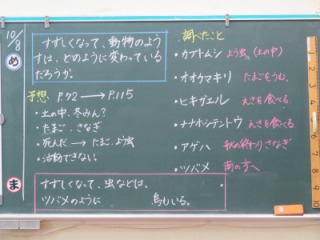 10/8
め
すずしくなって、動物のよう
すは、どのように変わっている
だろうか。
予想 P.92 → P.115
・土の中、冬みん?
・たまご、さなぎ
・死んだ → たまご、よう虫
・活動できない
ま
すずしくなって、虫などは、
ツバメのように 鳥もいる。
調べたこと
・カブトムシ よう虫(土の中)
・オオカマキリ たまごをうむ。
・ヒキガエル えさを食べる
・ナナホシテントウ えさを食べる
・アゲハ 秋の終わりさなぎ
・ツバメ 南の方へ